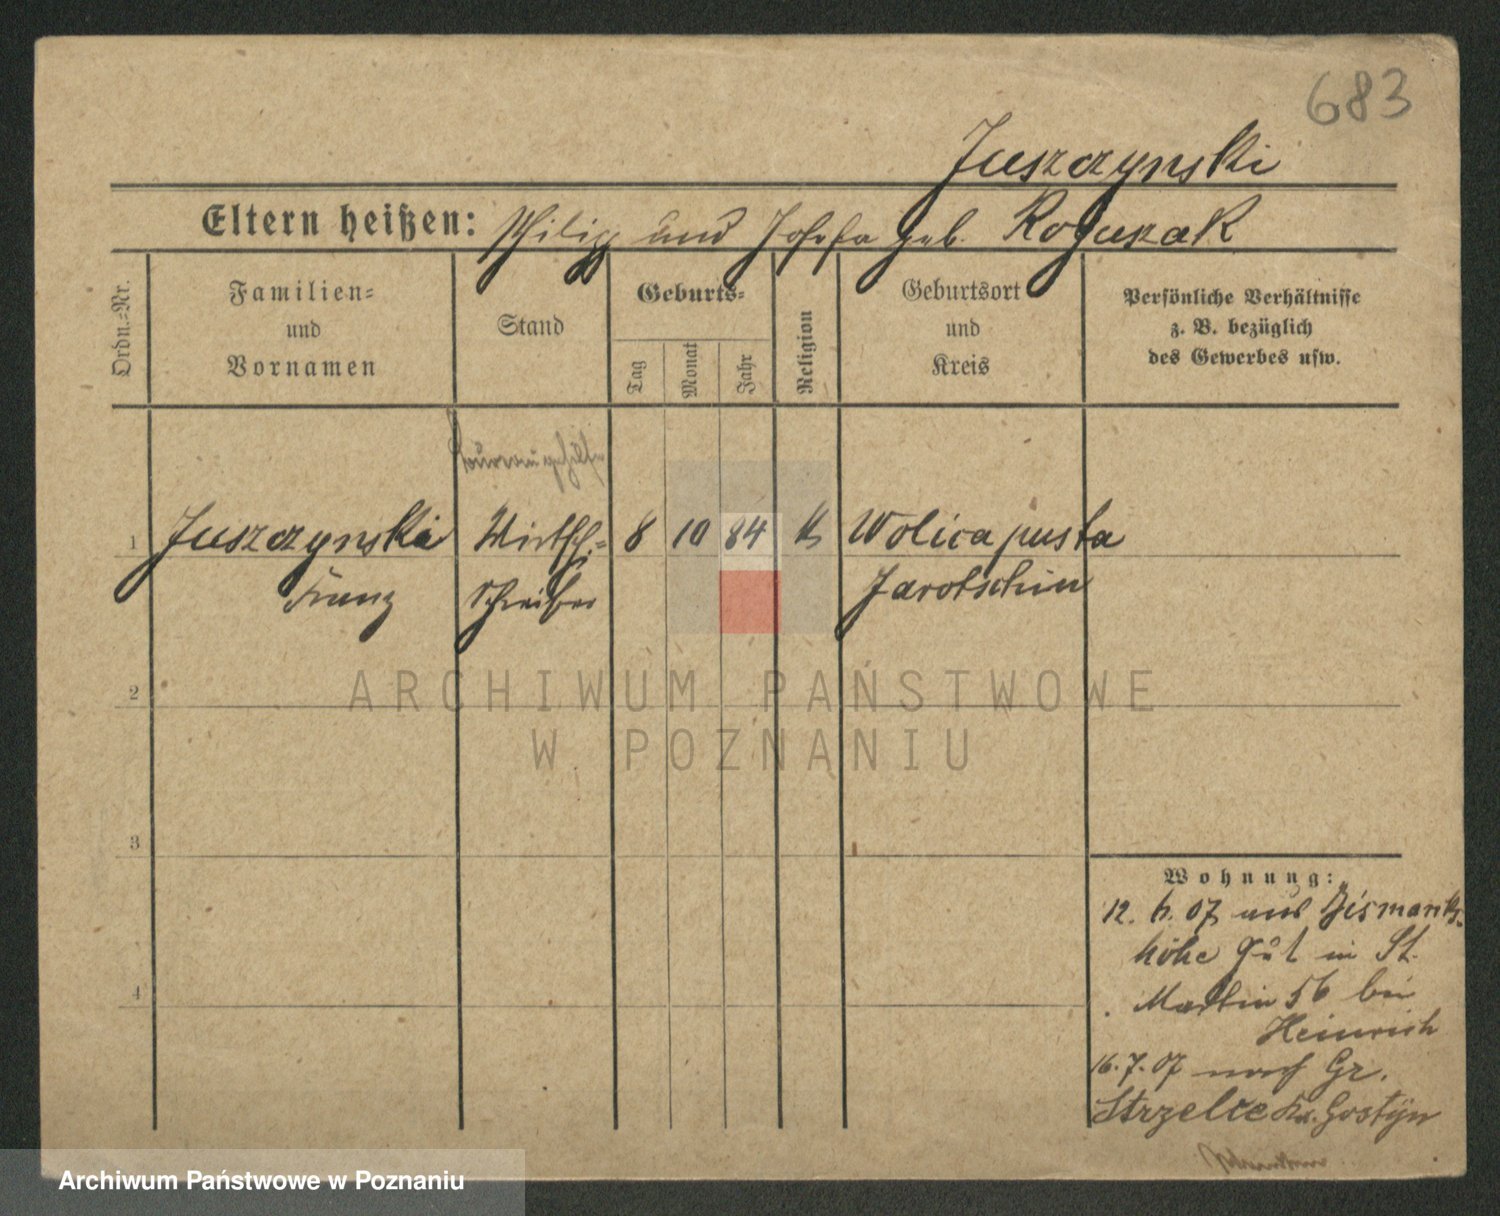 683
Juszczynski
Eltern heißen: Philipp und Josefa geb. Roguszak
Ordn.=Nr.
Familien= und Vornamen
Stand
Geburts=
Tag
Monat
Jahr
Religion
Geburtsort und Kreis
Persönliche Verhältnisse
z. B. bezüglich
des Gewerbes usw.
1 Juszczynski Wirtsch.= 8 10 84 k Wolica pusta
Franz Schreiber Jarotschin
2
3
4
Wohnung:
12. 6. 07 aus Bismarks
höhe Gut in St.
Martin 56 bei
Heinrich
16.7.07 nach Gr.
Strzelce Kr. Gostyn
ARCHIWUM PAŃSTWOWE
W POZNANIU
Archiwum Państwowe w Poznaniu